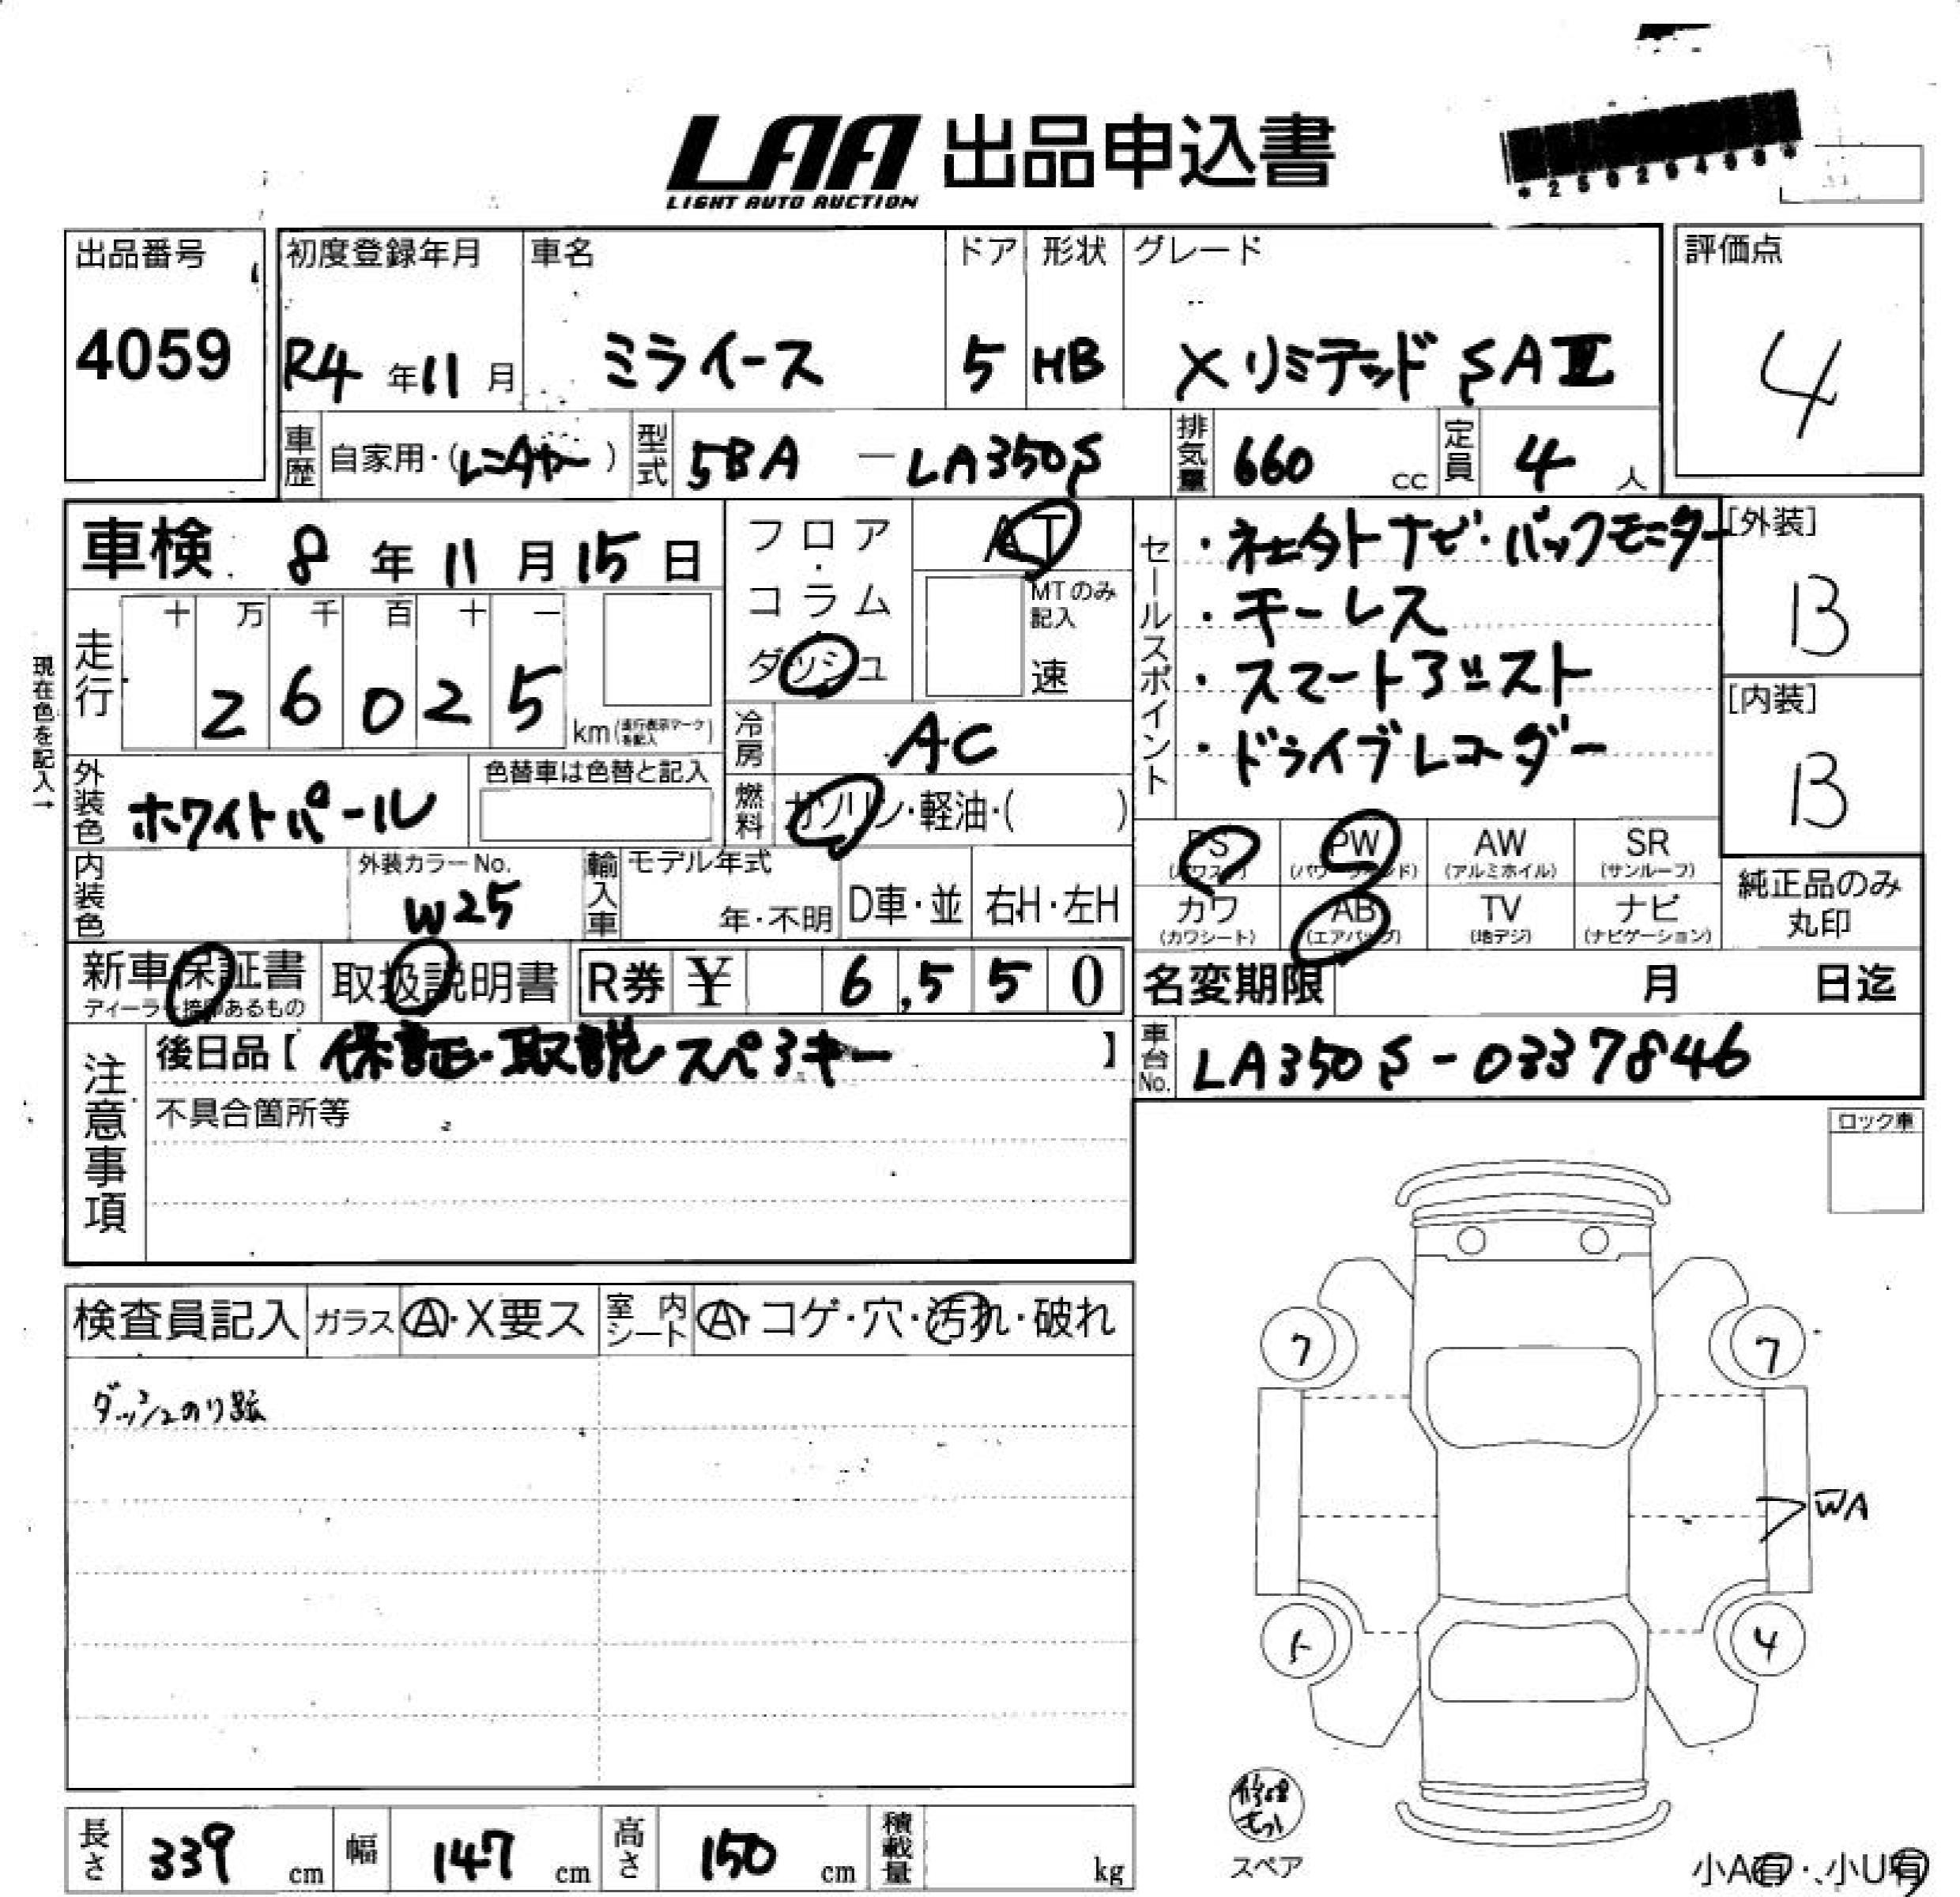 LAA 出品申込書
LIGHT AUTO AUCTION
*25026400*
出品番号
4059
初度登録年月
R4年11月
車名
ミライース
ドア
5
形状
HB
グレード
X リミテッド SAⅢ
評価点
4
車歴 自家用・(レンタカー)
型式 5BA-LA350S
排気量 660cc
定員 4人
車検 8年11月15日
フロア・コラム・ダッシュ
AT
MTのみ記入
速
走行
十 万 千 百 十 一
2 6 0 2 5
km(走行表示マークを記入)
現在色を記入→
冷房 AC
外装色 ホワイトパール
色替車は色替と記入
燃料 ガソリン・軽油・( )
内装色
外装カラーNo.
W25
輸入車
モデル年式
年・不明
D車・並
右H・左H
新車保証書
ディーラー捺印あるもの
取扱説明書
R券 ¥ 6,550
セールスポイント
・社外ナビ・バックモニター
・キーレス
・スマートアシスト
・ドライブレコーダー
[外装]
B
[内装]
B
PS (パワステ)
PW (パワーウィンド)
AW (アルミホイル)
SR (サンルーフ)
カワ (カワシート)
AB (エアバッグ)
TV (地デジ)
ナビ (ナビゲーション)
純正品のみ
丸印
名変期限 月 日迄
車台No. LA350S-0337846
注意事項
後日品【保証・取説 スペアキー】
不具合箇所等
ロック車
検査員記入
ガラス A・X要ス
室内シート A・コゲ・穴・汚れ・破れ
ダッシュのり跡
7
7
WA
4
修理キット
スペア
小A有・小U有
長さ 339cm
幅 147cm
高さ 150cm
積載量 kg